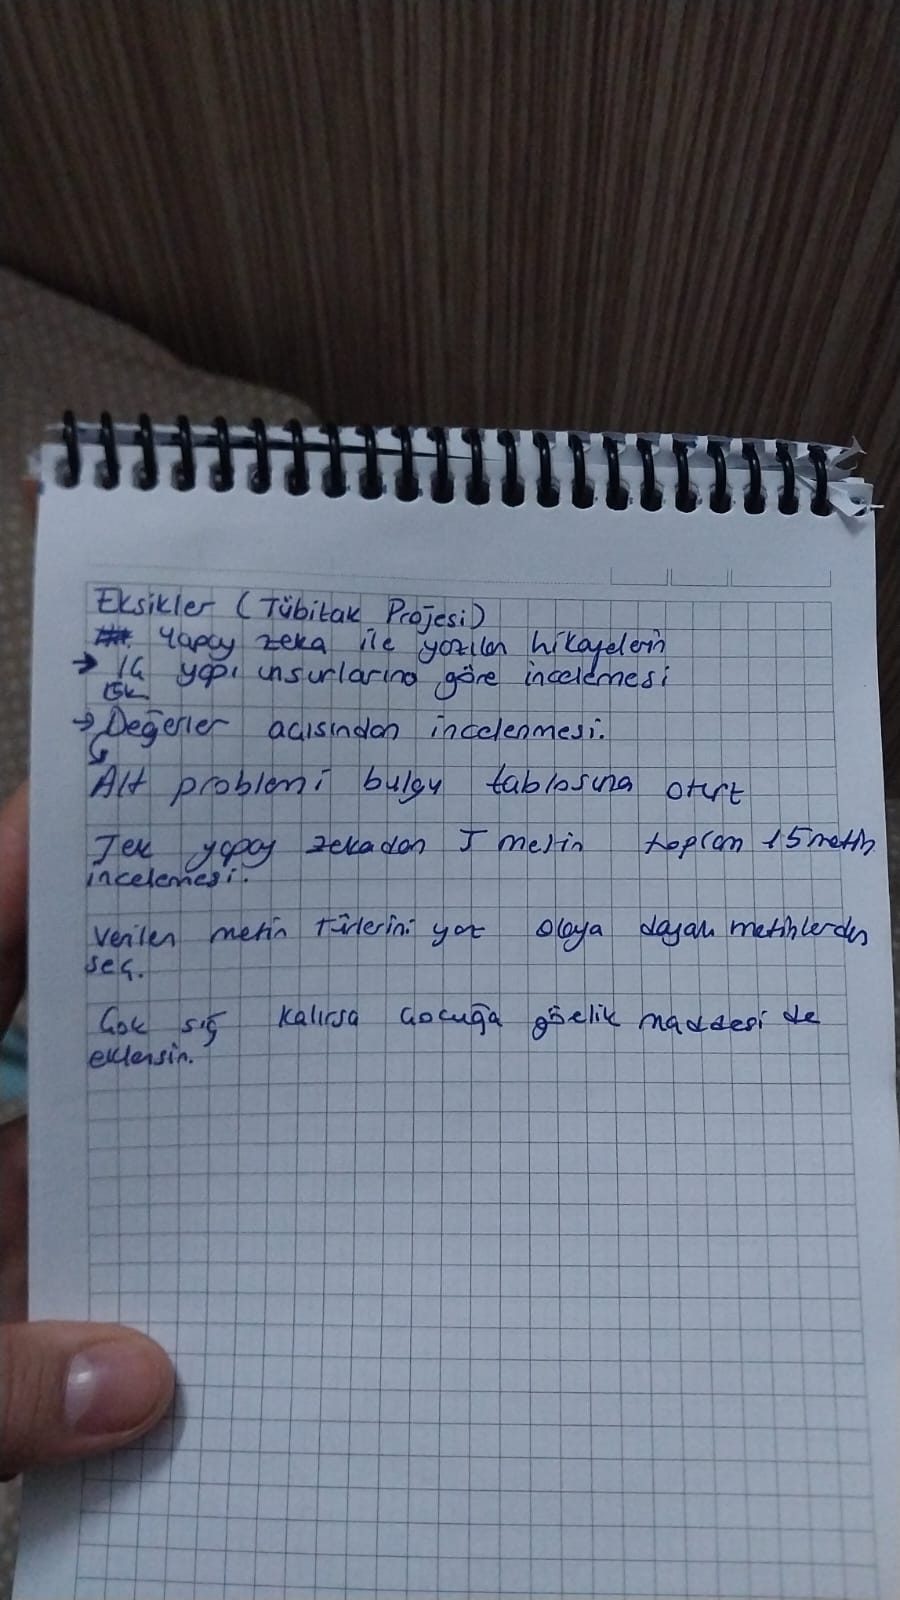 Eksikler (Tübitak Projesi)
Yapay zeka ile yazılan hikayelerin
→ İç yapı unsurlarına göre incelemesi
Ek
→ Değerler açısından incelenmesi.
Alt problemi bulgu tablosuna oturt
Tek yapay zekadan 5 metin toplam 15 metin
incelemesi.
Verilen metin türlerini yaz olaya dayalı metinlerden
seç.
Çok sığ kalırsa çocuğa görelik maddesi de
eklersin.